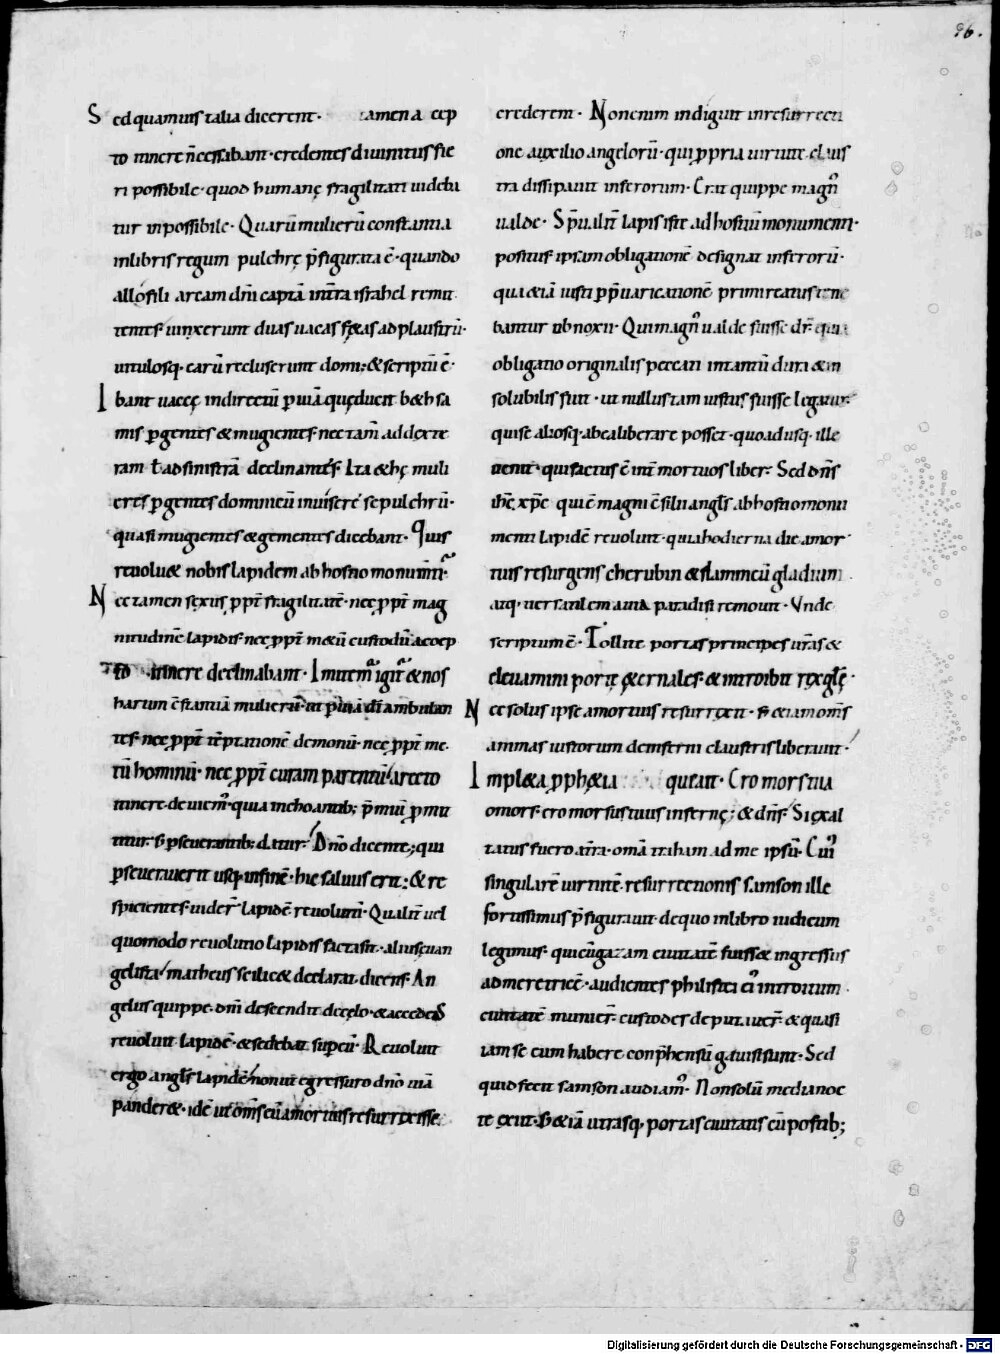 96.
Sed quamuis talia dicerent· tamen a cep
to itinere ñ cessabant· credentes diuinitus fie
ri possibile· quod humanę fragilitati uideba
tur inpossibile· Quarū mulierū constantia
in libris regum pulchrę p̄figurata ē· quando
allofili arcam dn̄i captā intra israhel remit
tentes· iunxerunt duas uacas f&as ad plaustrū·
uitulosq· earū recluserunt domi; & scriptū ē·
Ibant uaccę in directū p uiā quę ducit b&hsa
mis pgentes & mugientes· nec tam̄ ad dexte
ram ł ad sinistrā declinantes· Ita & hę muli
eres pgentes dominicū inuisere sepulchrū·
quasi mugientes & gementes dicebant· Quis
reuolu& nobis lapidem ab hostio monumti·
Nec tamen sexus ppt̄ fragilitatē· nec ppt̄ mag
nitudinē lapidis· nec ppt̄ m&ū custodū a coep
to itinere declinabant· Imitem igit & nos
harum cstantiā mulierū· ut p uiā dī ambulan
tes· nec ppt̄ tēptationē demonū· nec ppt̄ me
tū hominū· nec ppt̄ curam parentū/ a recto
itinere deuiem· quia inchoantib; p̄miū pmit
titur· s pseuerantib; datur· Dn̄o dicente; qui
pseuerauerit usq; in finē· hic saluus erit; & re
spicientes· uider lapidē reuolutū· Qualit uel
quomodo reuolutio lapidis facta sit· alius euan
gelista/ matheus scilic& declarat dicens· An
gelus quippe dn̄i descendit de cęlo· & accedens
reuoluit lapidē· & sedebat sup eū· Reuoluit
ergo angls lapidē/ non ut egressuro dn̄o uiā
pander&· idē ut om̄s eū a mortuis resurrexisse
crederent· Non enim indiguit in resurrecti
one auxilio angelorū· qui ppria uirtute claus
tra dissipauit inferorum· Erat quippe magn
ualde· Sp̄ualit lapis iste ad hostiū monumenti·
positus· ipsam obligationē designat inferorū·
qua &iā iusti p p̄uaricationē primi reatus tene
bantur obnoxii· Qui magn ualde fuisse dr̄· quia
obligatio originalis peccati in tantū dura & in
solubilis fuit· ut nullus tam iustus fuisse legatur·
qui se aliosq· ab ea liberare posset· quoadusq· ille
uenit· qui factus ē int̄ mortuos liber· Sed dn̄s
ihc̄ xpc̄ qui ē magni csilii angls ab hostio monu
menti lapidē reuoluit· quia hodierna die a mor
tuis resurgens cherubin & flammeū gladium
atq· uersatilem a uia paradisi remouit· Unde
scriptum ē· Tollite portas principes uras &
eleuamini porte &ernales· & introibit rex glę·
Nec solus ipse a mortuis resurrexit· s & iam om̄s
animas iustorum de inferni claustris liberauit·
Impl&a pph&ia queait· Ero mors tua
o mors· ero morsus tuus inferne; & dn̄s· Si exal
tatus fuero a t̄ra· om̄a traham ad me ipsū· Cui
singularē uirtutē resurrectionis samson ille
fortissimus p̄figurauit· de quo in libro iudicum
legimus· qui cū gazam ciuitatē fuiss& ingressus
ad meretricē· audientes philistei ei introitum
ciuitatē munier· custodes deputauer· & quasi
iam se eum habere conp̄hensū gauisi sunt· Sed
quid fecit samson audiam· Non solū media noc
te exiit· s &iā utrasq· portas ciuitatis cū postib;
Digitalisierung gefördert durch die Deutsche Forschungsgemeinschaft - DFG